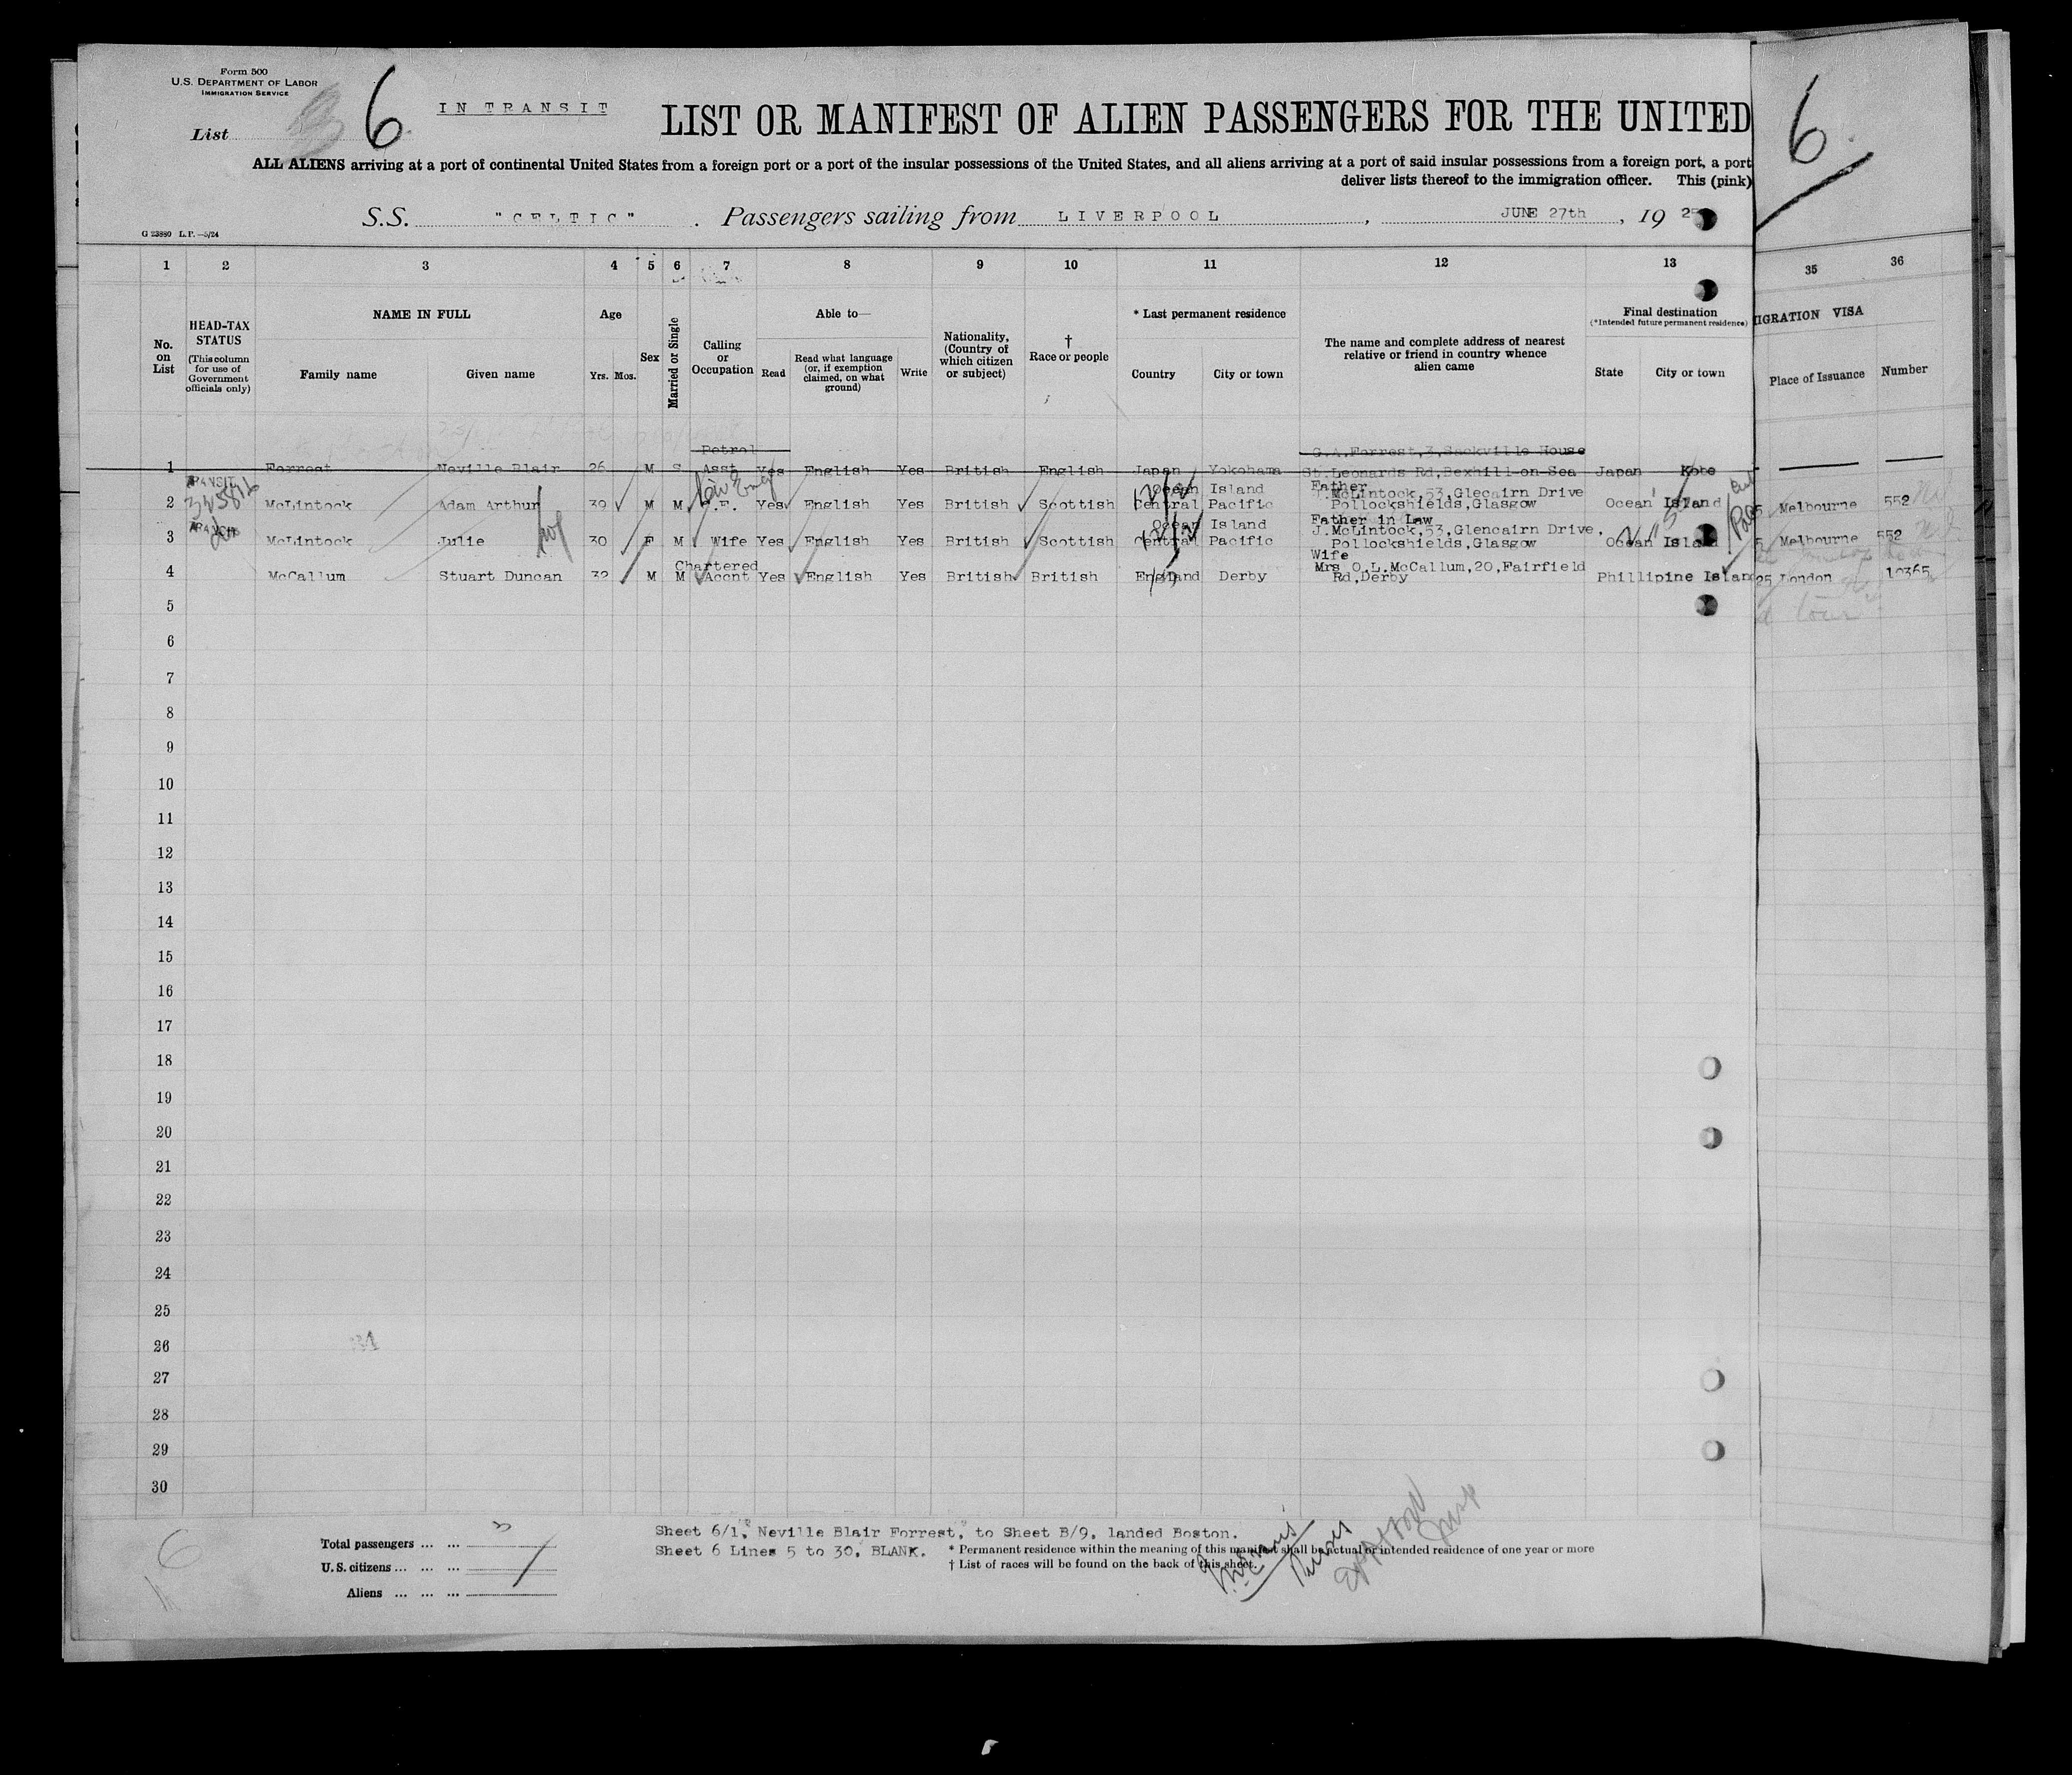 Form 500
U.S. DEPARTMENT OF LABOR
IMMIGRATION SERVICE
List 6
IN TRANSIT
LIST OR MANIFEST OF ALIEN PASSENGERS FOR THE UNITED
6
ALL ALIENS arriving at a port of continental United States from a foreign port or a port of the insular possessions of the United States, and all aliens arriving at a port of said insular possessions from a foreign port, a port
deliver lists thereof to the immigration officer. This (pink)
S.S. "CELTIC". Passengers sailing from LIVERPOOL, JUNE 27th, 19 25
G 23880 L.P.—5/24
1 2 3 4 5 6 7 8 9 10 11 12 13 35 36
No. on List
HEAD-TAX STATUS
(This column for use of Government officials only)
NAME IN FULL
Family name Given name
Age
Yrs. Mos.
Sex
Married or Single
Calling or Occupation
Able to—
Read
Read what language (or, if exemption claimed, on what ground)
Write
Nationality, (Country of which citizen or subject)
† Race or people
* Last permanent residence
Country City or town
The name and complete address of nearest relative or friend in country whence alien came
Final destination
(*Intended future permanent residence)
State City or town
IGRATION VISA
Place of Issuance Number
Petrol G.A.Forrest,3,Sackville House
1 Forrest Neville Blair 26 M S Asst Yes English Yes British English Japan Yokohama St.Leonards Rd,Bexhill-on-Sea Japan Kobe
TRANSIT Ocean Island Father
J.McLintock,53,Glecairn Drive
2 McLintock Adam Arthur 39 M M .E. Yes English Yes British Scottish Central Pacific Pollockshields,Glasgow Ocean Island 5 Melbourne 552
TRANSIT Ocean Island Father in Law
J.McLintock,53,Glencairn Drive,
3 McLintock Julie 30 F M Wife Yes English Yes British Scottish Central Pacific Pollockshields,Glasgow Ocean Island 5 Melbourne 552
Chartered Wife
Mrs O.L.McCallum,20,Fairfield
4 McCallum Stuart Duncan 32 M M Accnt Yes English Yes British British England Derby Rd,Derby Phillipine Islan 25 London 10365
5
6
7
8
9
10
11
12
13
14
15
16
17
18
19
20
21
22
23
24
25
26
27
28
29
30
6
Total passengers ... ... 3
U.S. citizens ... ... ...
Aliens ... ... ...
Sheet 6/1, Neville Blair Forrest, to Sheet B/9, landed Boston.
Sheet 6 Lines 5 to 30, BLANK.
* Permanent residence within the meaning of this manifest shall be actual or intended residence of one year or more
† List of races will be found on the back of this sheet.